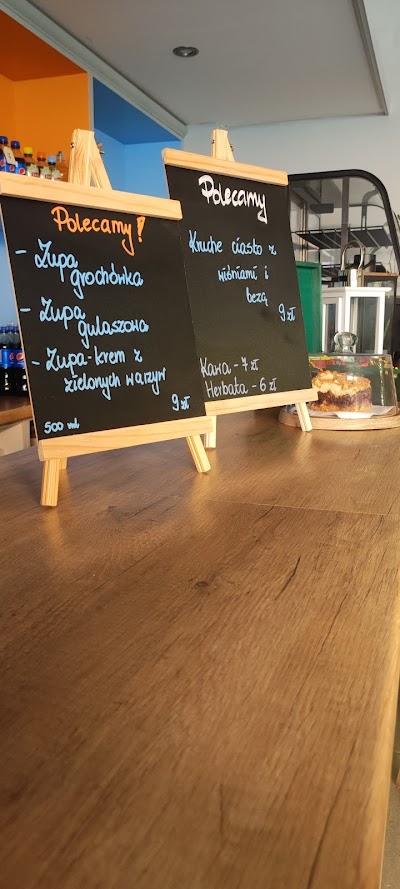 Polecamy!
- Zupa
grochówka
- Zupa
gulaszowa
- Zupa-krem z
zielonych warzyw
9 zł
500 ml
Polecamy
Kruche ciasto z
wiśniami i
bezą
9 zł
Kawa - 7 zł
Herbata - 6 zł